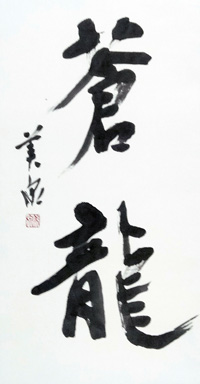 蒼龍
美泉